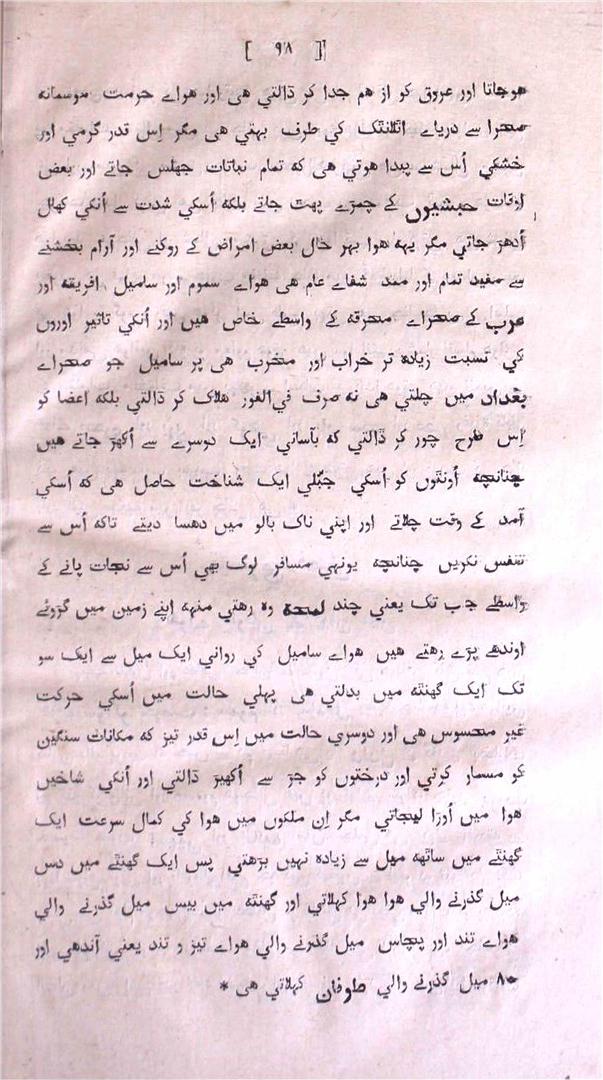 [ ۹۸ ]
هوجاتا اور عروق کو از هم جدا کر ڈالتي هی اور هواے حرمت موسمانه
صحرا سے دریاے اٹلانٹک کي طرف بهتي هی مگر اِس قدر گرمي اور
خشکي اُس سے پیدا هوتي هی که تمام نباتات جهلس جاتے اور بعض
اوقات حبشیوں کے چمڑے پھٹ جاتے بلکه اُسکي شدت سے اُنکي کھال
اُدهڑ جاتي مگر یهه هوا بهر حال بعض امراض کے روکنے اور آرام بخشنے
سے مفید تمام اور ممد شفاے عام هی هواے سموم اور سامیل افریقه اور
عرب کے صحراے متحرقه کے واسطے خاص هیں اور اُنکي تاثیر اوروں
کي نسبت زیاده تر خراب اور مخرب هی پر سامیل جو صحراے
بغداد میں چلتي هی نه صرف في‌الفور هلاک کر ڈالتي بلکه اعضا کو
اِس طرح چور کر ڈالتي که بآساني ایک دوسرے سے اُکھڑ جاتے هیں
چنانچه اُونٹوں کو اُسکي جبّلي ایک شناخت حاصل هی که اُسکي
آمد کے وقت چلاتے اور اپني ناک بالو میں دهسا دیتے تاکه اُس سے
تنفس نکریں چنانچه یونهي مسافر لوگ بھي اُس سے نجات پانے کے
واسطے جب تک یعني چند لمحه وه رهتي منهه اپنے زمین میں گڑوئے
اوندهے پڑے رهتے هیں هواے سامیل کي رواني ایک میل سے ایک سو
تک ایک گھنٹه میں بدلتي هی پهلي حالت میں اُسکي حرکت
غیر محسوس هی اور دوسري حالت میں اِس قدر تیز که مکانات سنگین
کو مسمار کرتي اور درختوں کو جڑ سے اُکھیڑ ڈالتي اور اُنکي شاخیں
هوا میں اُوڑا لیجاتي مگر اِن ملکوں میں هوا کي کمال سرعت ایک
گھنٹے میں ساٹھه میل سے زیاده نهیں بڑهتي پس ایک گھنٹے میں دس
میل گذرنے والي هوا هوا کهلاتي اور گھنٹه میں بیس میل گذرنے والي
هواے تند اور پچاس میل گذرنے والي هواے تیز و تند یعني آندهي اور
۸۰ میل گذرنے والي طوفان کهلاتي هی *